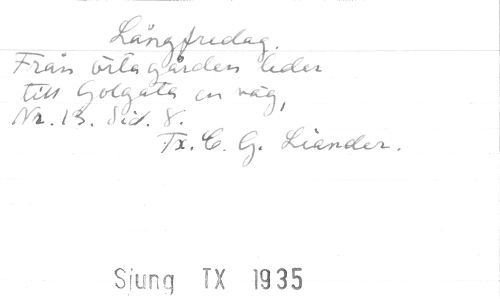 Långfredag.
Från örtagården leder
till Golgata en väg,
Nr. 13. Sid. 8.
Tx. C. G. Liander.
Sjung TX 1935